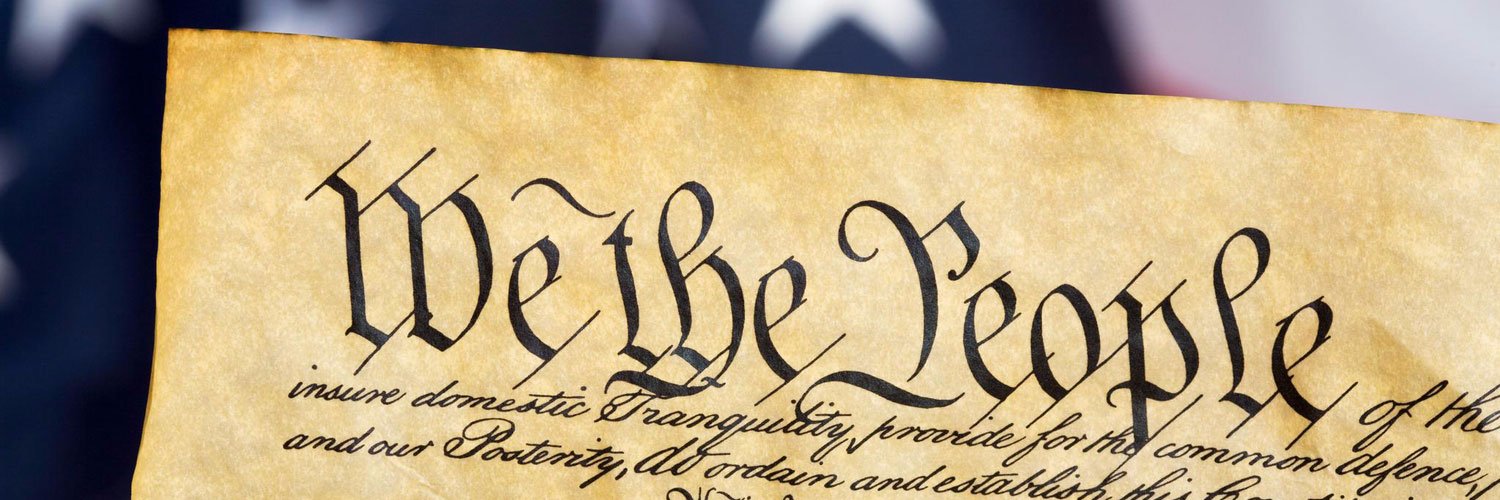 We the People of the
insure domestic Tranquility, provide for the common defence,
and our Posterity, do ordain and establish this